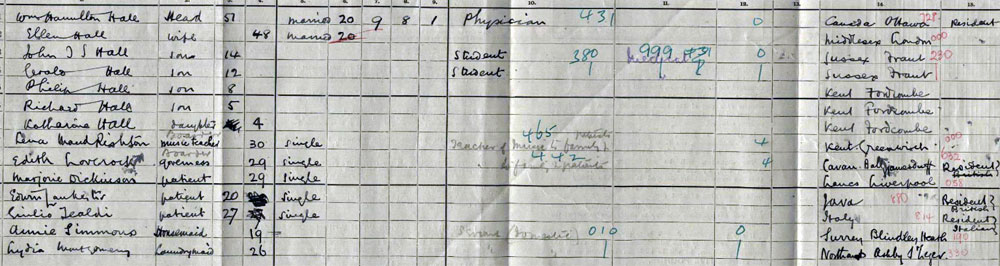 10.
Wm Hamilton Hall Head 51 married 20 9 8 1 Physician 431 0 Canada Ottawa 728 Resident
Ellen Hall wife 48 married 20 Middlesex London 000
John I S Hall son 14 Student 380 999 0 Sussex Frant 230
Gerald Hall son 12 Student Sussex Frant
Philip Hall son 8 Kent Fordcombe
Richard Hall son 5 Kent Fordcombe
Katharine Hall daughter 4 Kent Fordcombe "
Boarder 465
Lena Maud Rishton music teacher 30 single Teacher of Music to family & 4 Kent Greenwich 000
Boarder 442
Edith Lovcrock governess 29 single patients 4 Cavan Ballyjamesduff 032 Resident
British
Marjorie Dickinson patient 29 single Lancs Liverpool 038
Edwin Lankester patient 20 single Java 880 " Resident
British
Giulio Tealdi patient 27 single Italy 814 Resident
Italian
Annie Simmons Housemaid 19 (Domestic) 010 0 Surrey Blindley Heath 190
Lydia Montgomery Laundrymaid 26 " Northants Ashby St Legers 330